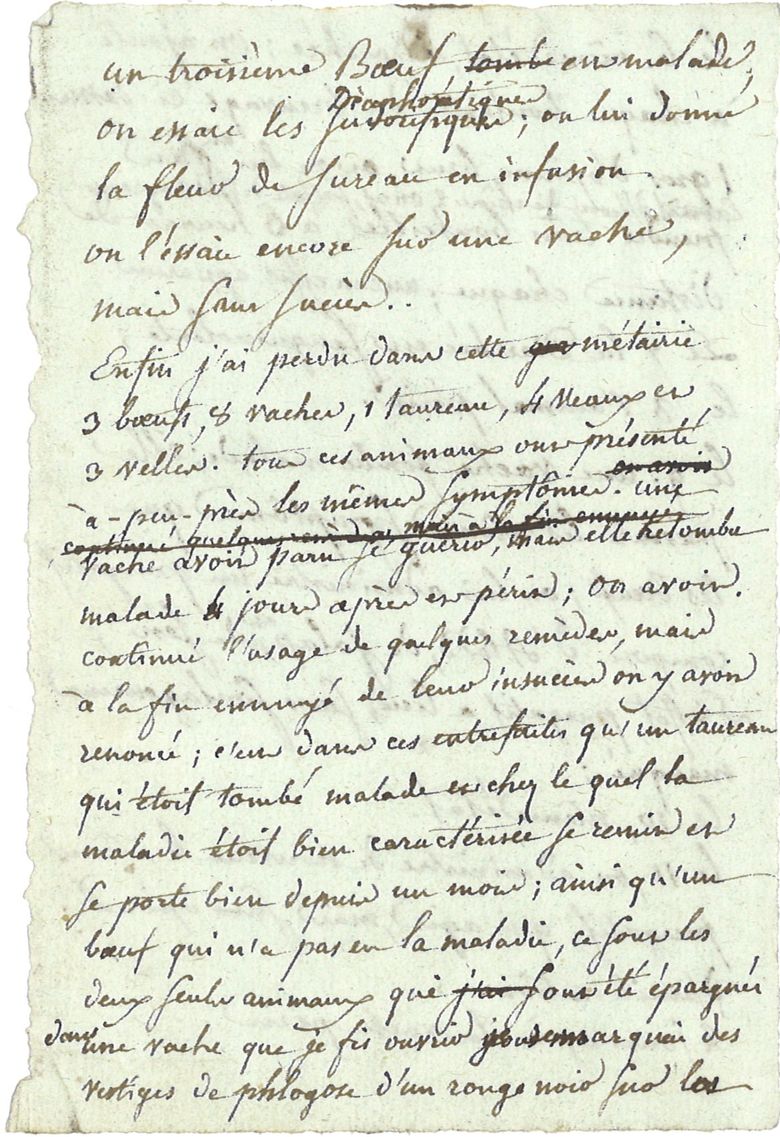 un troisième Bœuf tombe est malade,
Diaphorétiques
on essaie les sudorifiques; on lui donne
la fleur de sureau en infusion
on l'essaie encore sur une vache,
mais sans succès..
Enfin j'ai perdu dans cette métairie
3 bœufs, 8 vaches, 1 taureau, 4 veaux et
3 velles. tous ces animaux ont présenté
on avoit
à-peu-près les mêmes symptômes. une
continué quelques remèdes, mais à la fin ennuyé
vache avoit paru se guérir, mais elle retomba
malade 4 jours après et périt; on avoit
continué l'usage de quelques remèdes, mais
à la fin ennuyé de leur insuccès on y avoit
renoncé; c'est dans ces entrefaites qu'un taureau
qui étoit tombé malade et chez le quel la
maladie étoit bien caractérisée se remit et
se porte bien depuis un mois; ainsi qu'un
bœuf qui n'a pas eu la maladie, ce sont les
deux seuls animaux que j'ai sont été épargnés
dans une vache que je fis ouvrir je remarquai des
vestiges de phlogose d'un rouge noir sur les